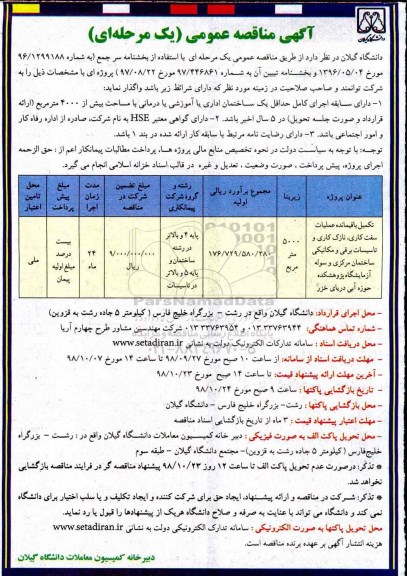 دانشگاه گیلان
آگهی مناقصه عمومی (یک مرحله‌ای)
دانشگاه گیلان در نظر دارد از طریق مناقصه عمومی یک مرحله ای با استفاده از بخشنامه سر جمع (به شماره ۹۶/۱۲۹۹۱۸۸
مورخ ۱۳۹۶/۰۵/۰۴ و بخشنامه تبیین آن به شماره ۹۷/۴۴۶۸۶۱ مورخ ۹۷/۰۸/۲۲ ) پروژه ای با مشخصات ذیل را به
شرکت توانمند و صاحب صلاحیت در زمینه مورد نظر که دارای شرائط زیر باشد واگذار نماید:
۱- دارای سابقه اجرای کامل حداقل یک ساختمان اداری یا آموزشی یا درمانی با مساحت بیش از ۴۰۰۰ مترمربع (ارائه
قرارداد و صورت جلسه تحویل) در ۵ سال اخیر باشد. ۲- دارای گواهی معتبر HSE به نام شرکت، صادره از اداره رفاه کار
و امور اجتماعی باشد. ۳- دارای رضایت نامه مرتبط با سابقه کار ارائه شده در بند ۱ باشد.
توجه: با توجه به سیاست دولت در نحوه تخصیص منابع مالی پروژه ها، پرداخت مطالبات پیمانکار اعم از : حق الزحمه
اجرای پروژه، پیش پرداخت ، صورت وضعیت ، تعدیل و غیره در قالب اسناد خزانه اسلامی انجام می گیرد.
عنوان پروژه | زیربنا | مجموع برآورد ریالی اولیه | رشته و گروه شرکت پیمانکاری | مبلغ تضمین شرکت در مناقصه | مدت زمان اجرا | مبلغ پیش پرداخت | محل تامین اعتبار
تکمیل باقیمانده عملیات سفت کاری، نازک کاری و تاسیسات برقی و مکانیکی ساختمان مرکزی و سوله آزمایشگاه پژوهشکده حوزه آبی دریای خزر | ۵۰۰۰ متر مربع | ۱۷۶/۷۲۹/۵۸۰/۲۸۰ | پایه ۴ و بالاتر در رشته ساختمان و پایه ۵ و بالاتر در تاسیسات | ۹/۰۰۰/۰۰۰/۰۰۰ ریال | ۲۴ ماه | بیست درصد مبلغ اولیه پیمان | ملی
- محل اجرای قرارداد: دانشگاه گیلان واقع در رشت – بزرگراه خلیج فارس ( کیلومتر ۵ جاده رشت به قزوین)
- شماره تماس هماهنگی: ۳۳۷۶۳۹۴۴ ۰۱۳ و ۳۳۷۶۳۹۵۴ ۰۱۳ شرکت مهندسین مشاور طرح چهارم آریا
- محل دریافت اسناد : سامانه تدارکات الکترونیک دولت به نشانی www.setadiran.ir
- مهلت دریافت اسناد از سامانه: از ساعت ۱۰ صبح مورخ ۹۸/۰۹/۲۷ تا ساعت ۱۴ مورخ ۹۸/۱۰/۰۷
- آخرین مهلت ارائه پیشنهاد قیمت: تا ساعت ۱۴ صبح مورخ ۹۸/۱۰/۲۳
- تاریخ بازگشایی پاکتها : ساعت ۹ صبح مورخ ۹۸/۱۰/۲۴
- محل بازگشایی پاکتها : رشت- بزرگراه خلیج فارس – دانشگاه گیلان
- مهلت اعتبار پیشنهاد قیمت : ۳ ماه از تاریخ بازگشایی اسناد مناقصه
- محل تحویل پاکت الف به صورت فیزیکی : دبیر خانه کمیسیون معاملات دانشگاه گیلان واقع در : رشت – بزرگراه
خلیج‌فارس (کیلومتر ۵ جاده رشت به قزوین)– مجتمع دانشگاه گیلان – طبقه سوم
* تذکر: درصورت عدم تحویل پاکت الف تا ساعت ۱۴ روز ۹۸/۱۰/۲۳ پیشنهاد مناقصه گر در فرایند مناقصه بازگشایی
نخواهد شد.
* تذکر: شرکت در مناقصه و ارائه پیشنهاد، ایجاد حق برای شرکت کننده و ایجاد تکلیف و یا سلب اختیار برای دانشگاه
نمی کند و دانشگاه می تواند با عنایت به صرفه و صلاح دانشگاه هریک از پیشنهادها را قبول یا رد نماید.
محل تحویل پاکتها به صورت الکترونیکی : سامانه تدارک الکترونیکی دولت به نشانی www.setadiran.ir
هزینه انتشار آگهی بر عهده برنده مناقصه است.
دبیرخانه کمیسیون معاملات دانشگاه گیلان